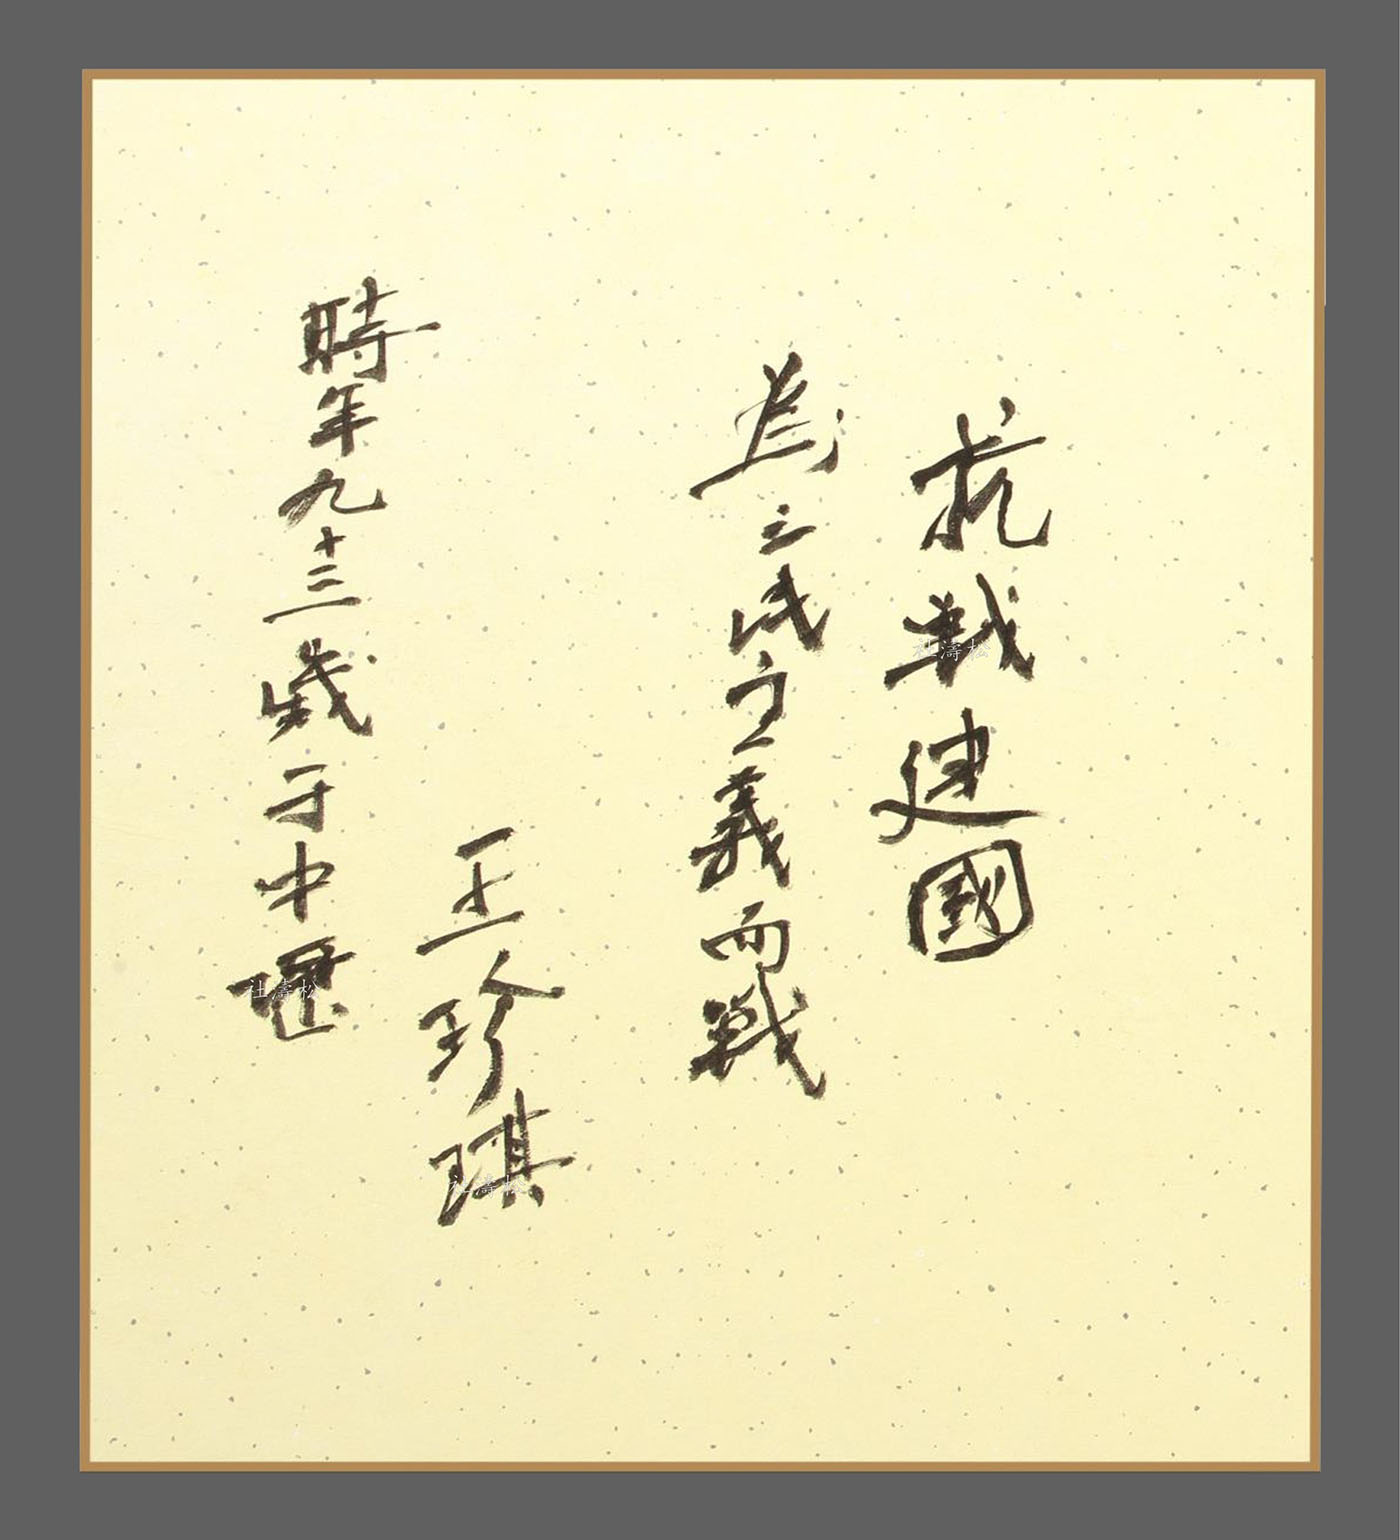 抗戰建國
為三民主義而戰
王珍琪
時年九十三歲于中壢
杜濤松
杜濤松
杜濤松